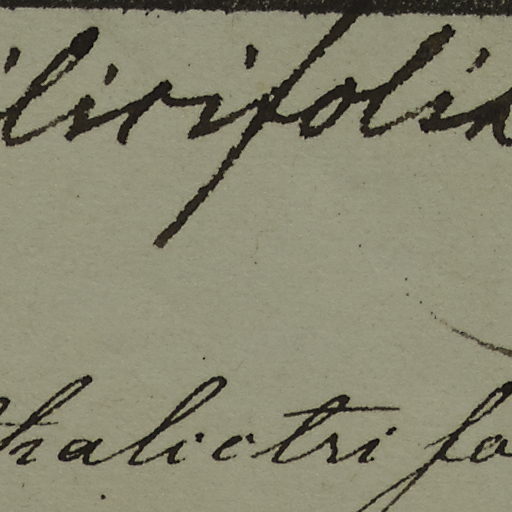 ilicifolia
thalictri fo